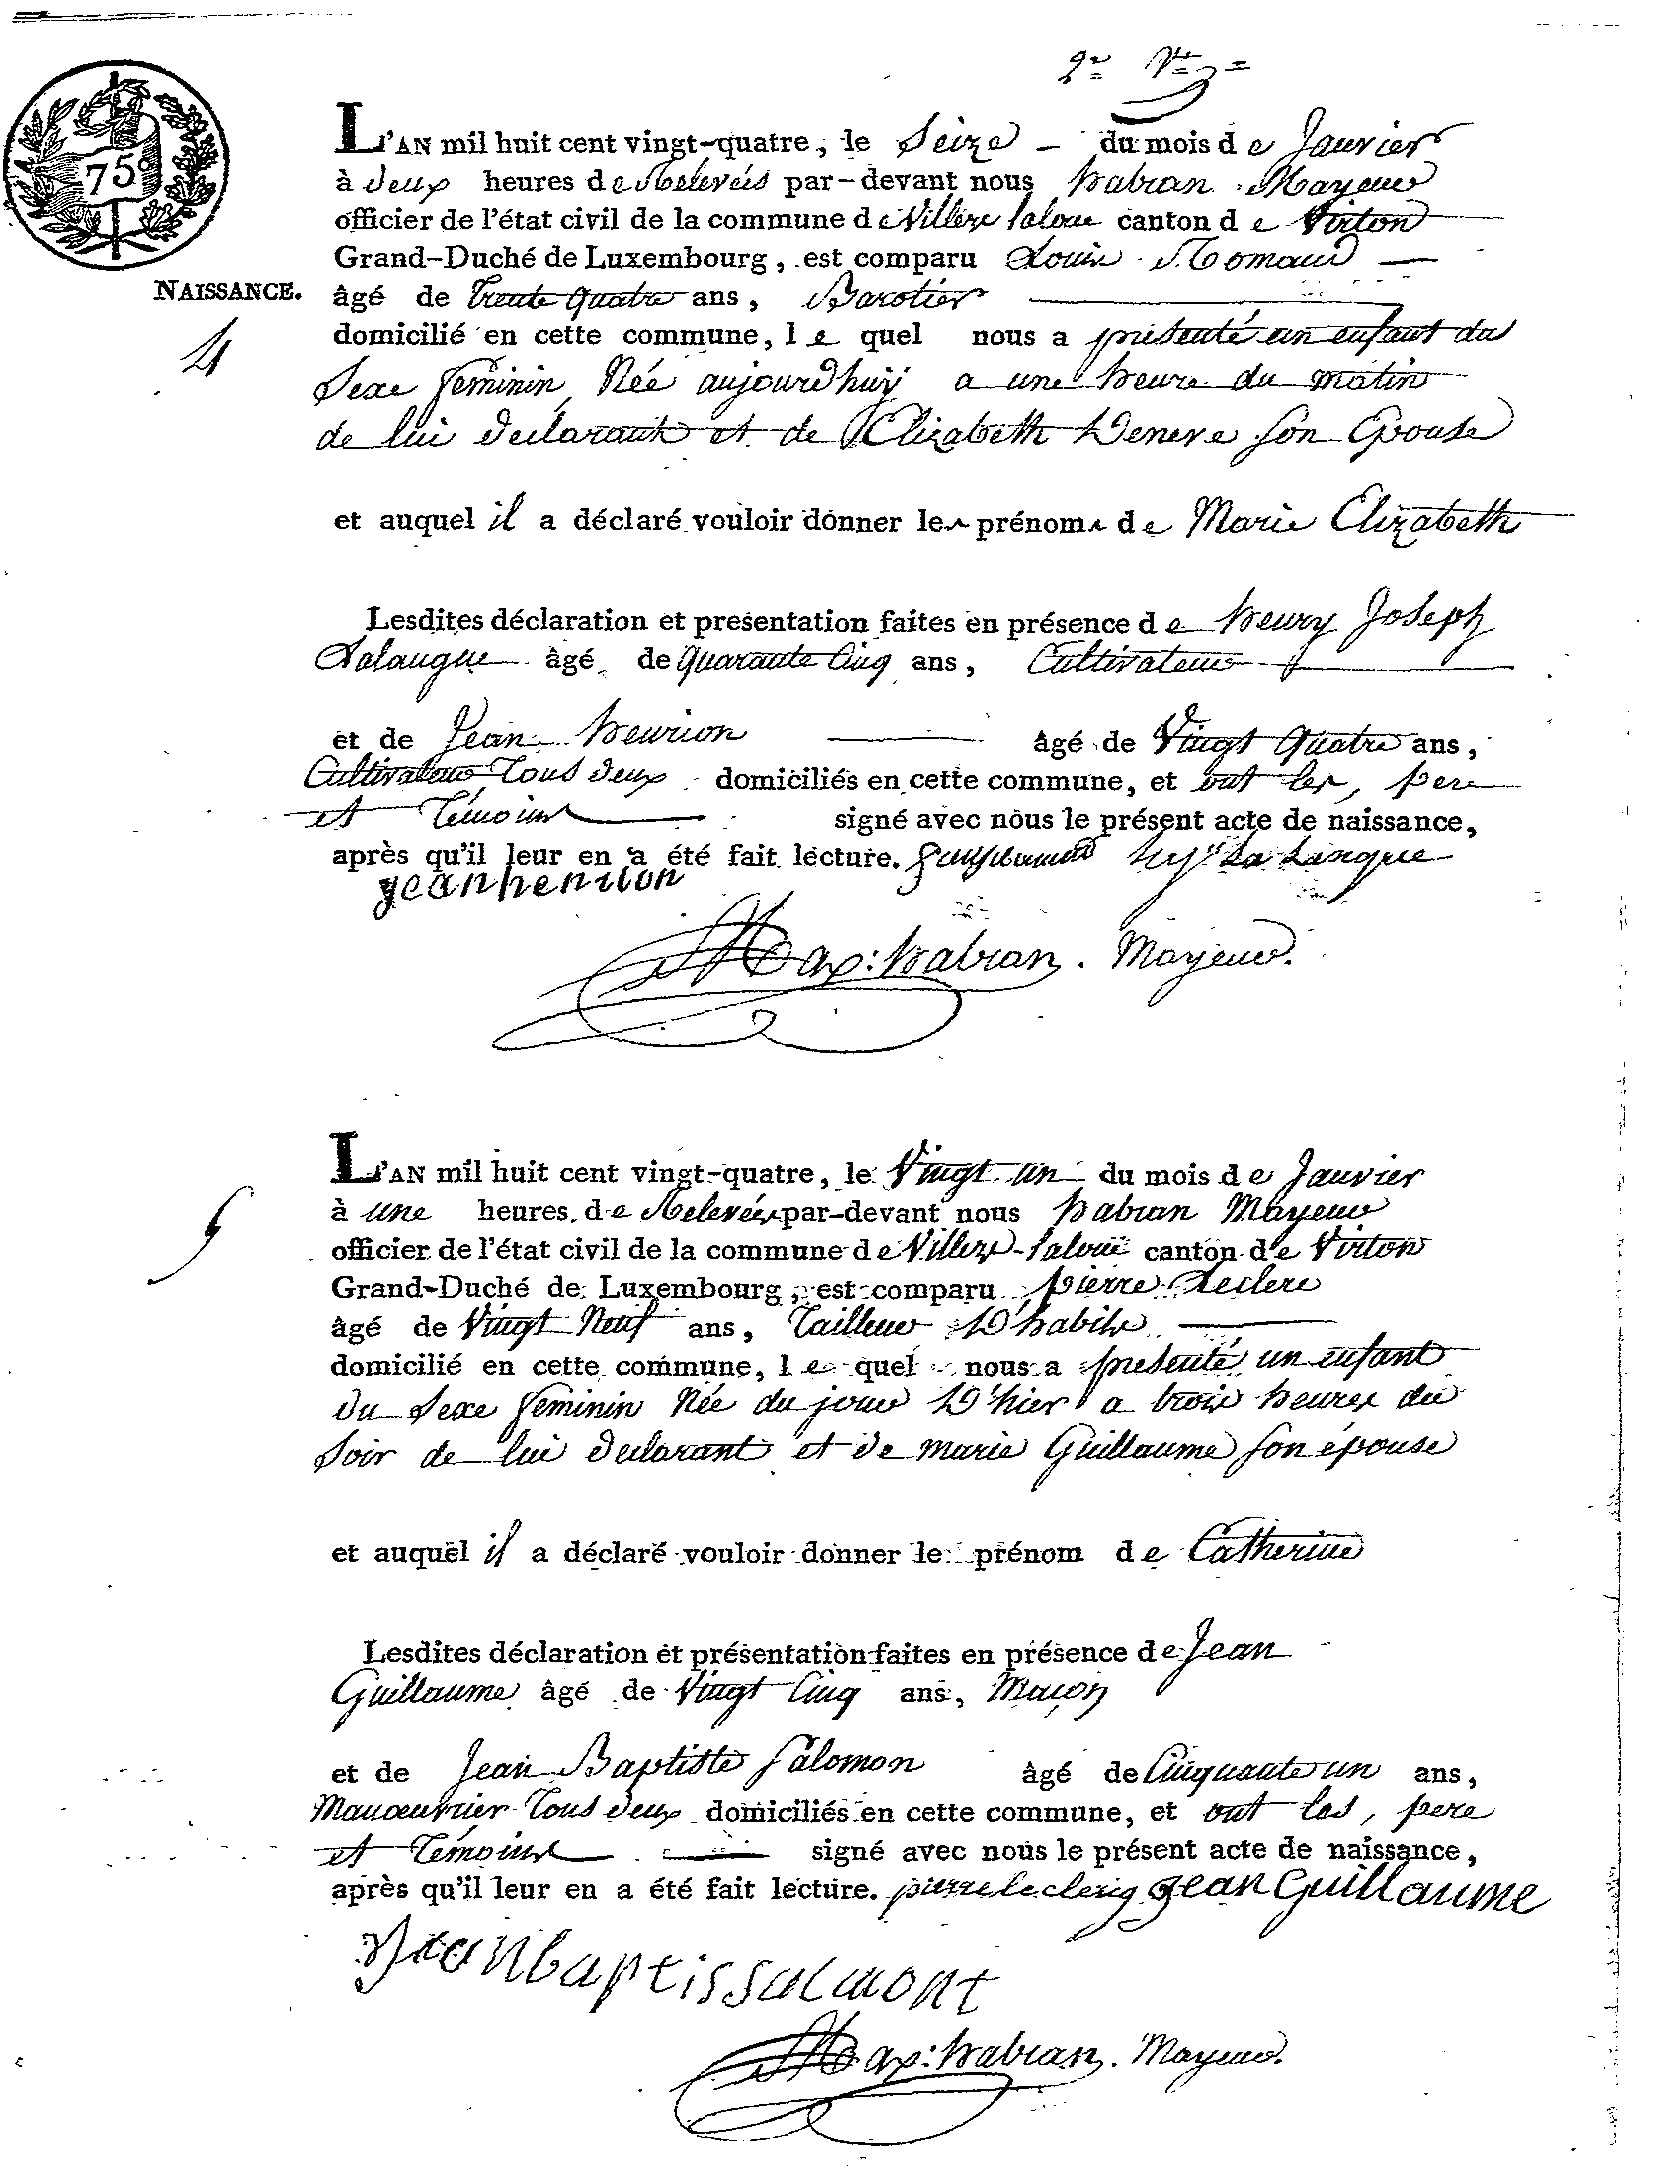 75c
L'AN mil huit cent vingt-quatre, le Seize du mois de Janvier
à deux heures de Relevéés par-devant nous habran Mayeur
officier de l'état civil de la commune de Villers laloue canton de Virton
Grand-Duché de Luxembourg, est comparu Louis
NAISSANCE.
âgé de trente quatre ans, Barotier
4
domicilié en cette commune, le quel nous a présenté un enfant du
Sexe feminin Née aujourdhuÿ a une heure du matin
de lui declarant et de Elizabeth Deneve son Epouse
et auquel il a déclaré vouloir donner les prénoms de Marie Elizabeth
Lesdites déclaration et presentation faites en présence de henry Joseph
Lalangue âgé de quarante Cinq ans, Cultivateur
et de Jean henrion âgé de Vingt Quatre ans,
Cultivateur Tous deux domiciliés en cette commune, et ont les, pere
et Témoins signé avec nous le présent acte de naissance,
après qu'il leur en a été fait lecture. La Langue
jean henrion
Max: habran. Mayeur.
L'AN mil huit cent vingt-quatre, le Vingt un du mois de Janvier
5
à une heures de Relevées par-devant nous habran Mayeur
officier de l'état civil de la commune de Villers-laloue canton de Virton
Grand-Duché de Luxembourg, est comparu pierre Leclere
âgé de Vingt Neuf ans, Tailleur D'habits
domicilié en cette commune, le quel nous a présenté un enfant
du Sexe feminin Née du jour D'hier a trois heures du
Soir de lui declarant et de marie Guillaume son épouse
et auquel il a déclaré vouloir donner le prénom de Catherine
Lesdites déclaration et présentation faites en présence de Jean
Guillaume âgé de Vingt Cinq ans, Maçon
et de Jean Baptiste Salomon âgé de Cinquante un ans,
Manoeuvrier Tous deux domiciliés en cette commune, et ont les, pere
et Témoins signé avec nous le présent acte de naissance,
après qu'il leur en a été fait lecture. pierre leclerq jean Guillaume
jean baptis salmont
Max: habran. Mayeur.